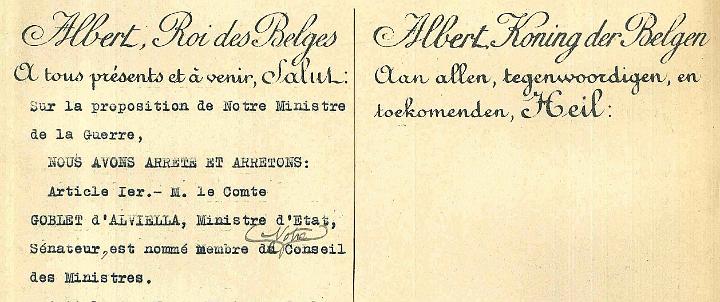 Albert, Roi des Belges
A tous présents et à venir, Salut:
Sur la proposition de Notre Ministre
de la Guerre,
NOUS AVONS ARRETE ET ARRETONS:
Article Ier.- M. le Comte
GOBLET d'ALVIELLA, Ministre d'Etat,
Notre
Sénateur, est nommé membre du Conseil
des Ministres.
Albert, Koning der Belgen
Aan allen, tegenwoordigen, en
toekomenden, Heil: